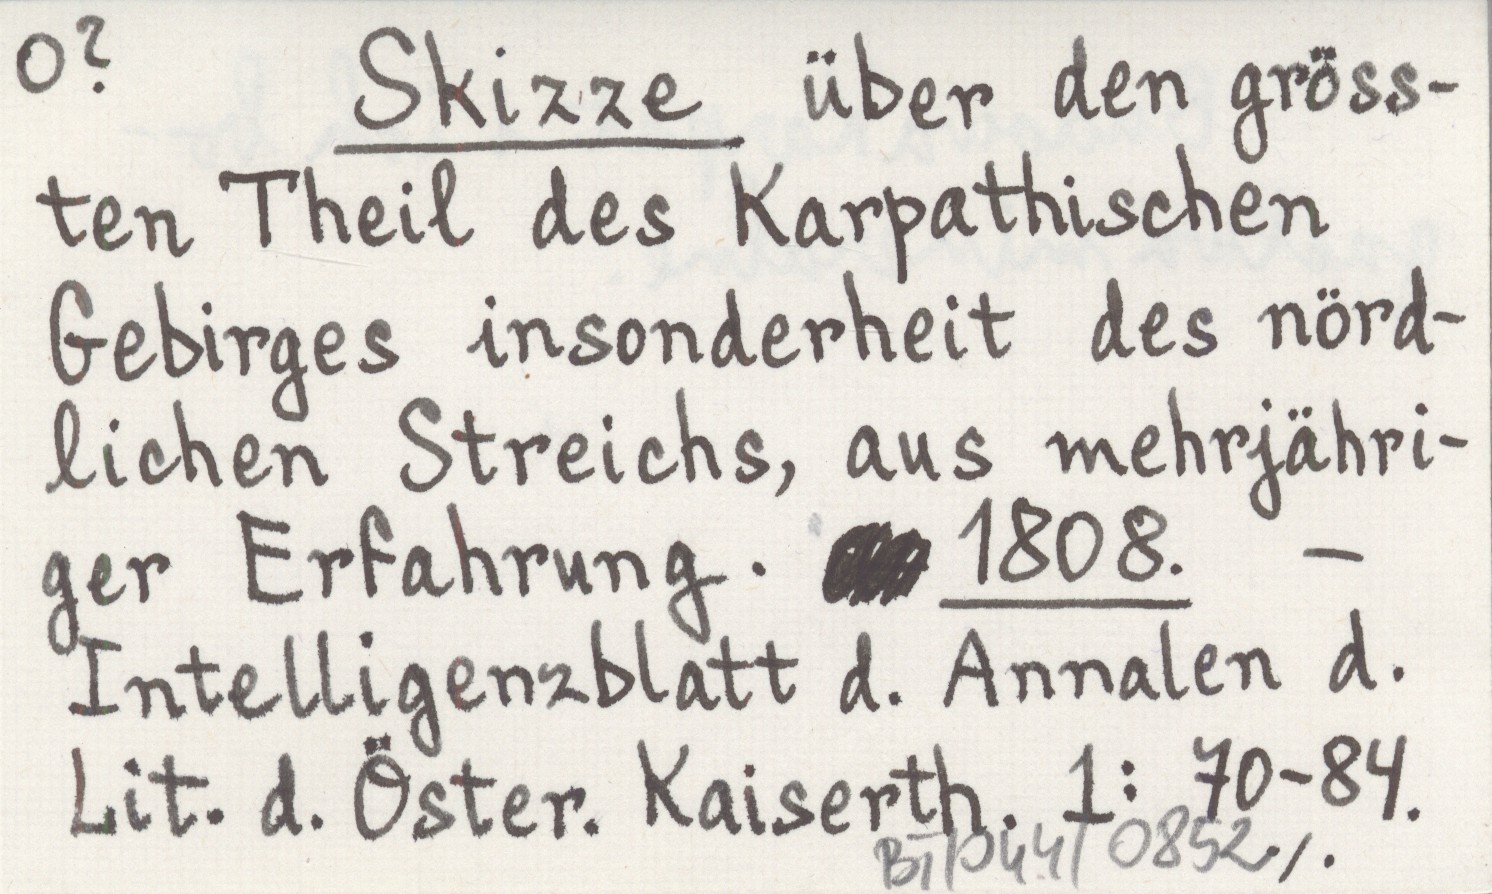 o? Skizze über den gröss-
ten Theil des Karpathischen
Gebirges insonderheit des nörd-
lichen Streichs, aus mehrjähri-
ger Erfahrung. 1808. —
Intelligenzblatt d. Annalen d.
Lit. d. Öster. Kaiserth. 1: 70-84.
0852